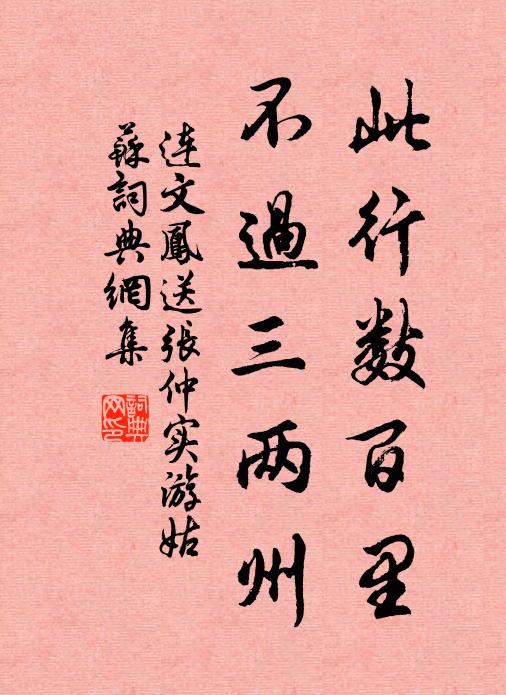 此行数百里
不過三两州
連文鳳送張仲实游姑
蘇詞典網集
詞典
网印